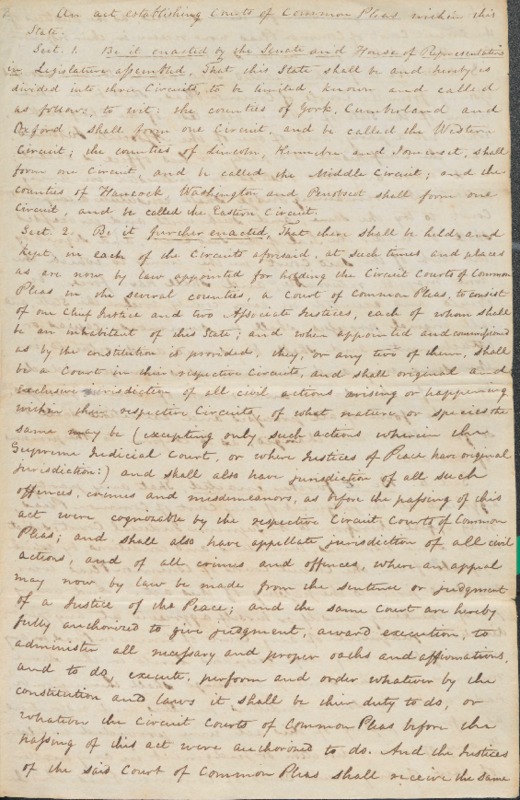 An act establishing Courts of Common Pleas within this
State.
Sect. 1. Be it enacted by the Senate and House of Representatives
in Legislature assembled, That this State shall be and hereby is
divided into three Circuits, to be limited, known and called
as follows, to wit: the counties of York, Cumberland and
Oxford, shall form one Circuit, and be called the Western
Circuit; the counties of Lincoln, Kennebec and Somerset, shall
form one Circuit, and be called the Middle Circuit; and the
counties of Hancock, Washington and Penobscot shall form one
Circuit, and be called the Eastern Circuit.
Sect. 2. Be it further enacted, That there shall be held and
kept, in each of the Circuits aforesaid, at such times and places
as are now by law appointed for holding the Circuit Courts of Common
Pleas in the several counties, a Court of Common Pleas, to consist
of one Chief Justice and two Associate Justices, each of whom shall
be an inhabitant of this State; and when appointed and commissioned
as by the constitution is provided, they, or any two of them, shall
be a Court in their respective Circuits, and shall original and
exclusive jurisdiction of all civil actions arising or happening
within their respective Circuits, of what nature or species the
same may be (excepting only such actions wherein the
Supreme Judicial Court, or where Justices of Peace have original
Jurisdiction:) and shall also have jurisdiction of all such
offences, crimes and misdemeanors, as before the passing of this
act were cognizable by the respective Circuit Courts of Common
Pleas; and shall also have appellate jurisdiction of all civil
actions, and of all crimes and offences, where an appeal
may now by law be made from the sentence or judgment
of a Justice of the Peace; and the same Court are hereby
fully authorized to give judgment, award execution, to
administer all necessary and proper oaths and affirmations,
and to do, execute, perform and order whatever by the
constitution and laws it shall be their duty to do, or
whatever the Circuit Courts of Common Pleas before the
passing of this act were authorized to do. And the Justices
of the said Court of Common Pleas shall receive the same